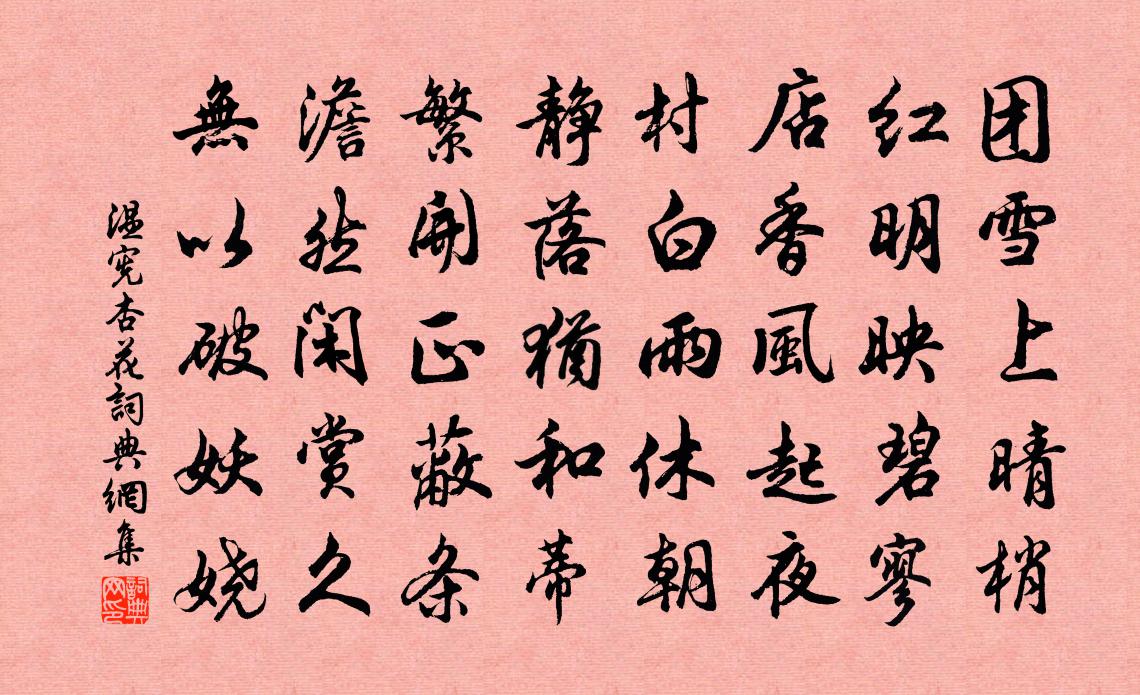 团雪上晴梢
红明映碧寥
店香風起夜
村白雨休朝
静落猶和蒂
繁開正蔽条
澹然閑赏久
無以破妖娆
温宪杏花詞典網集
詞典网印